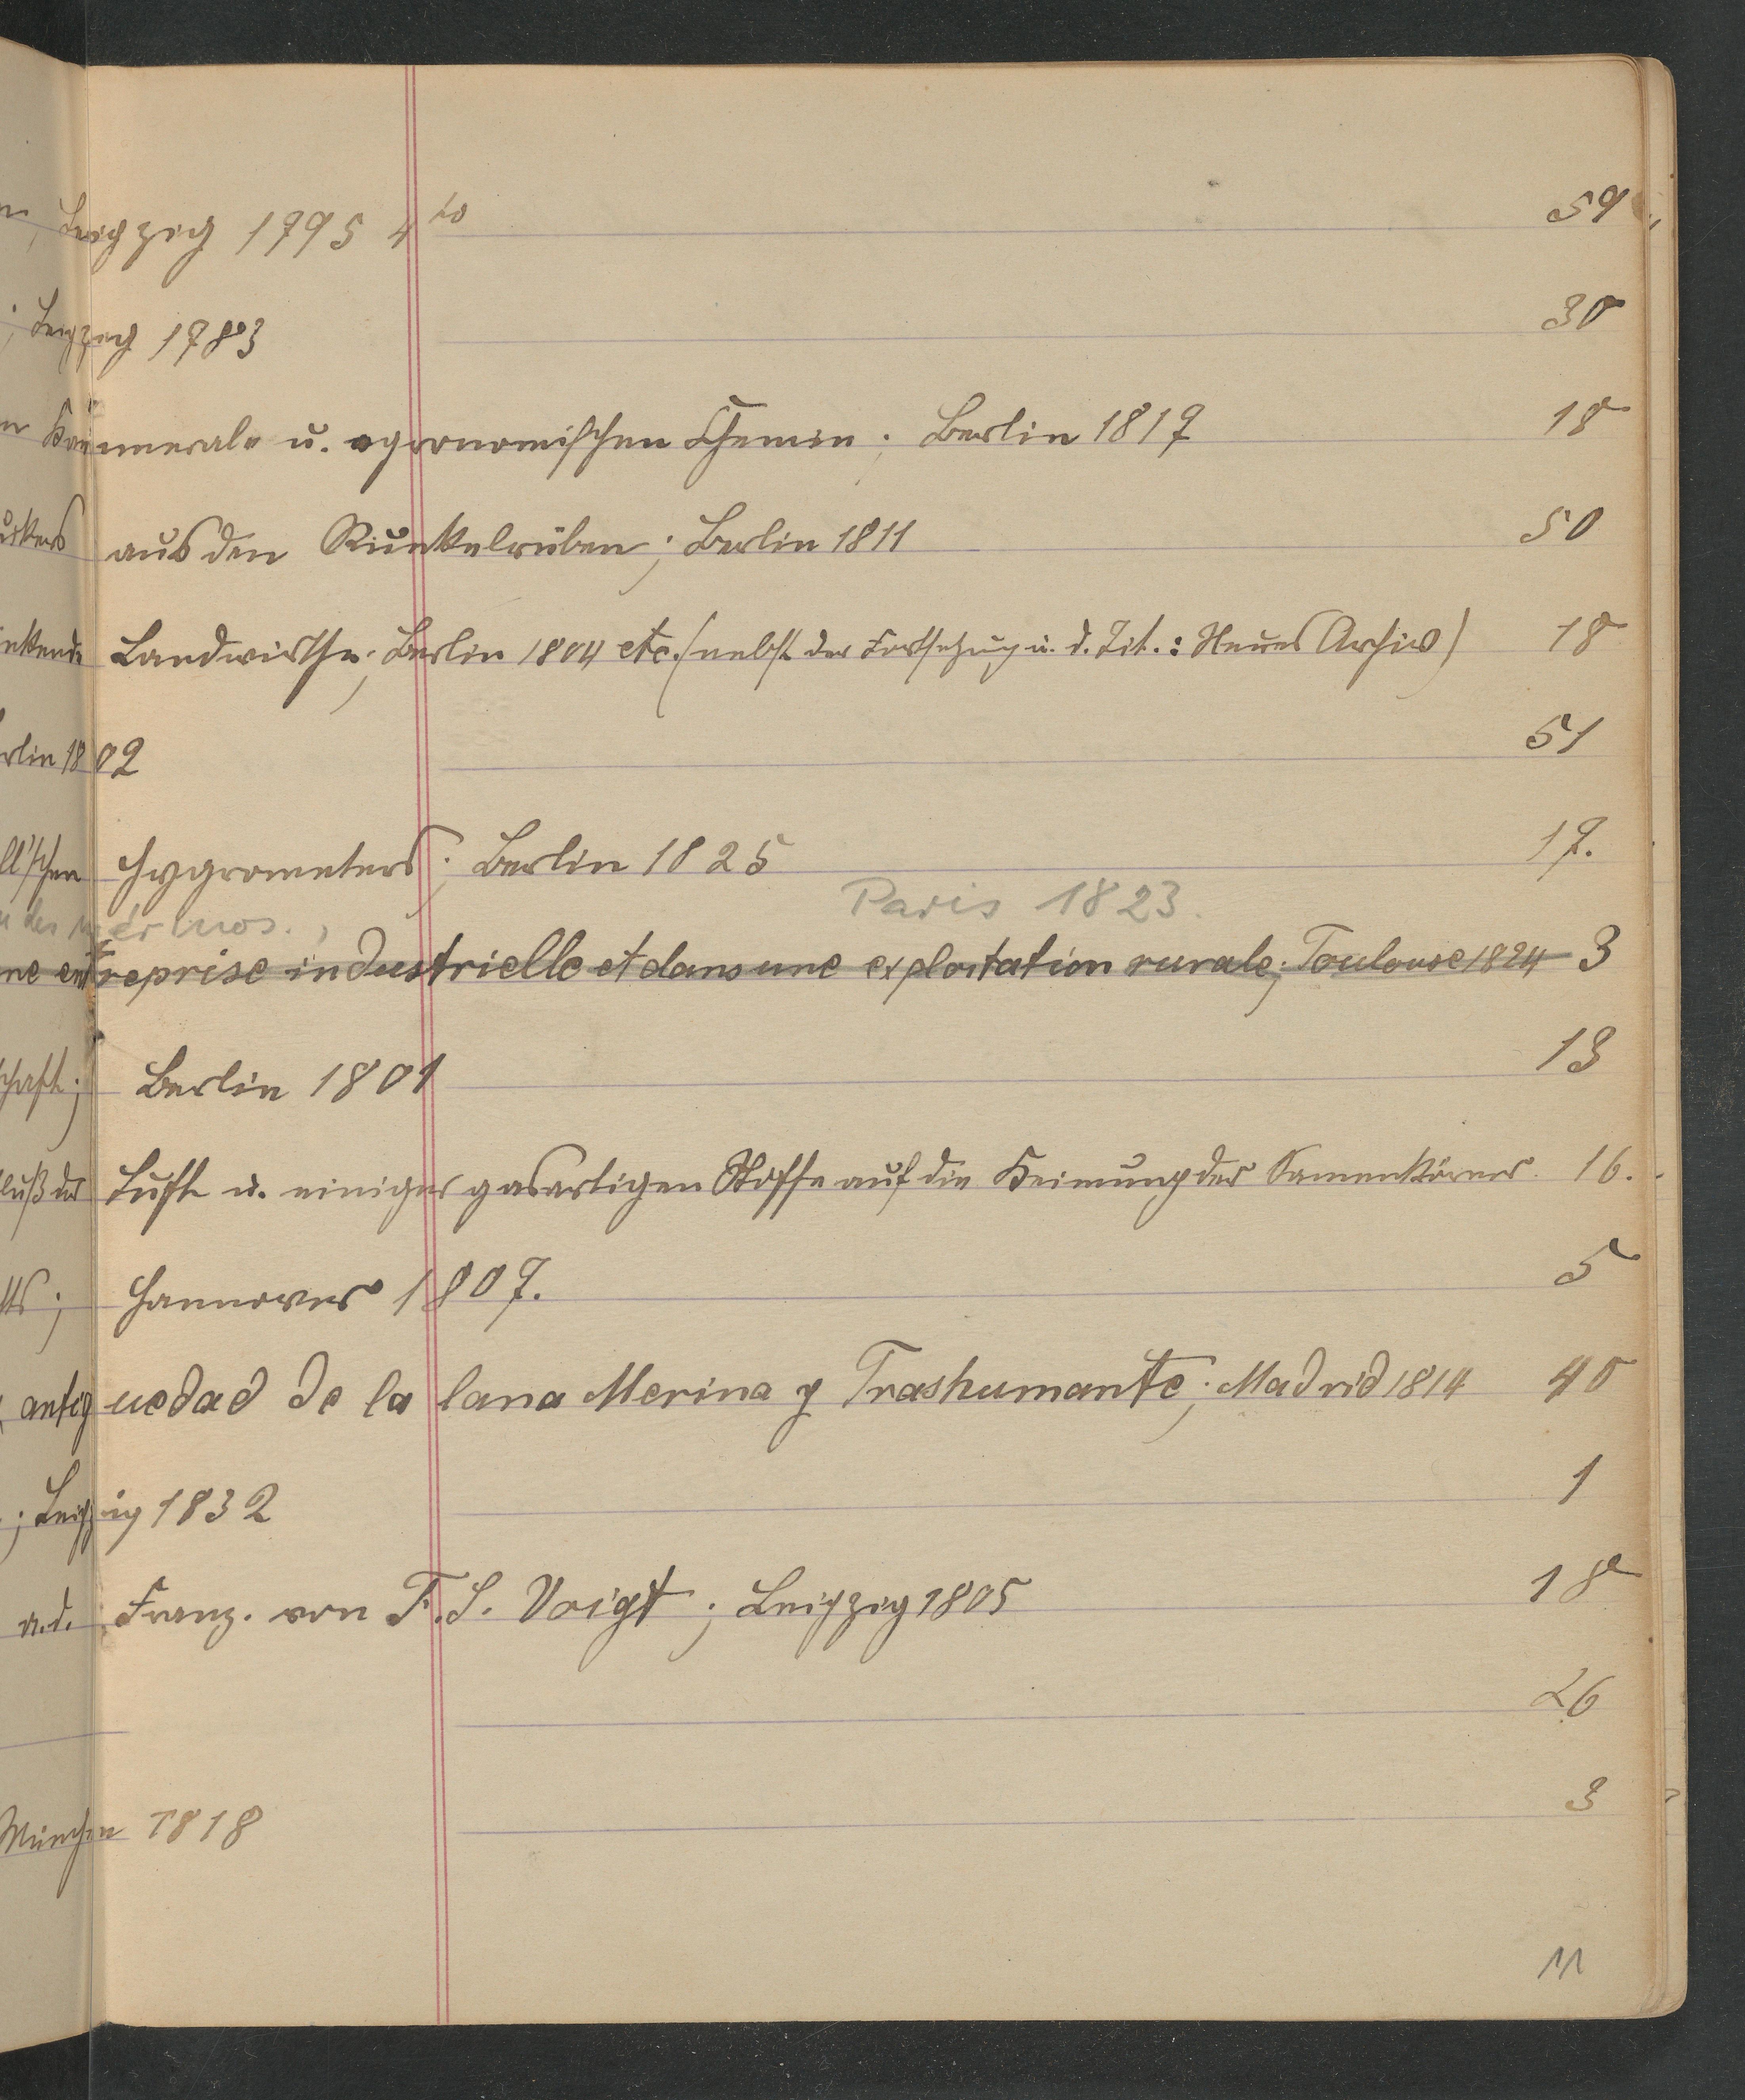 Leipzig 1795 4to 59
; Leipzig 1783 30
Kammeral- u. agronomischen Chemie; Berlin 1817 18
aus den Runkelrüben; Berlin 1811 50
Landwirthe; Berlin 1804 etc. (nebst der Fortsetzung u. d. Tit.: Neues Archiv) 18
rlin 1802 51
ll'schen Hygrometers; Berlin 1825 17.
des mérinos., Paris 1823.
ne entreprise industrielle et dans une exploitation rurale; Toulouse 1824 3
schaft; Berlin 1801 13
luß der Luft u. einiger gasartigen Stoffe auf die Keimung der Samenkörner 16.
Hannover 1807. 5
antiguedad de la lana Merina y Trashumante; Madrid 1814 40
; Leipzig 1832 1
a. d. Franz. von F. S. Voigt; Leipzig 1805 18
26
München 1818 3
11